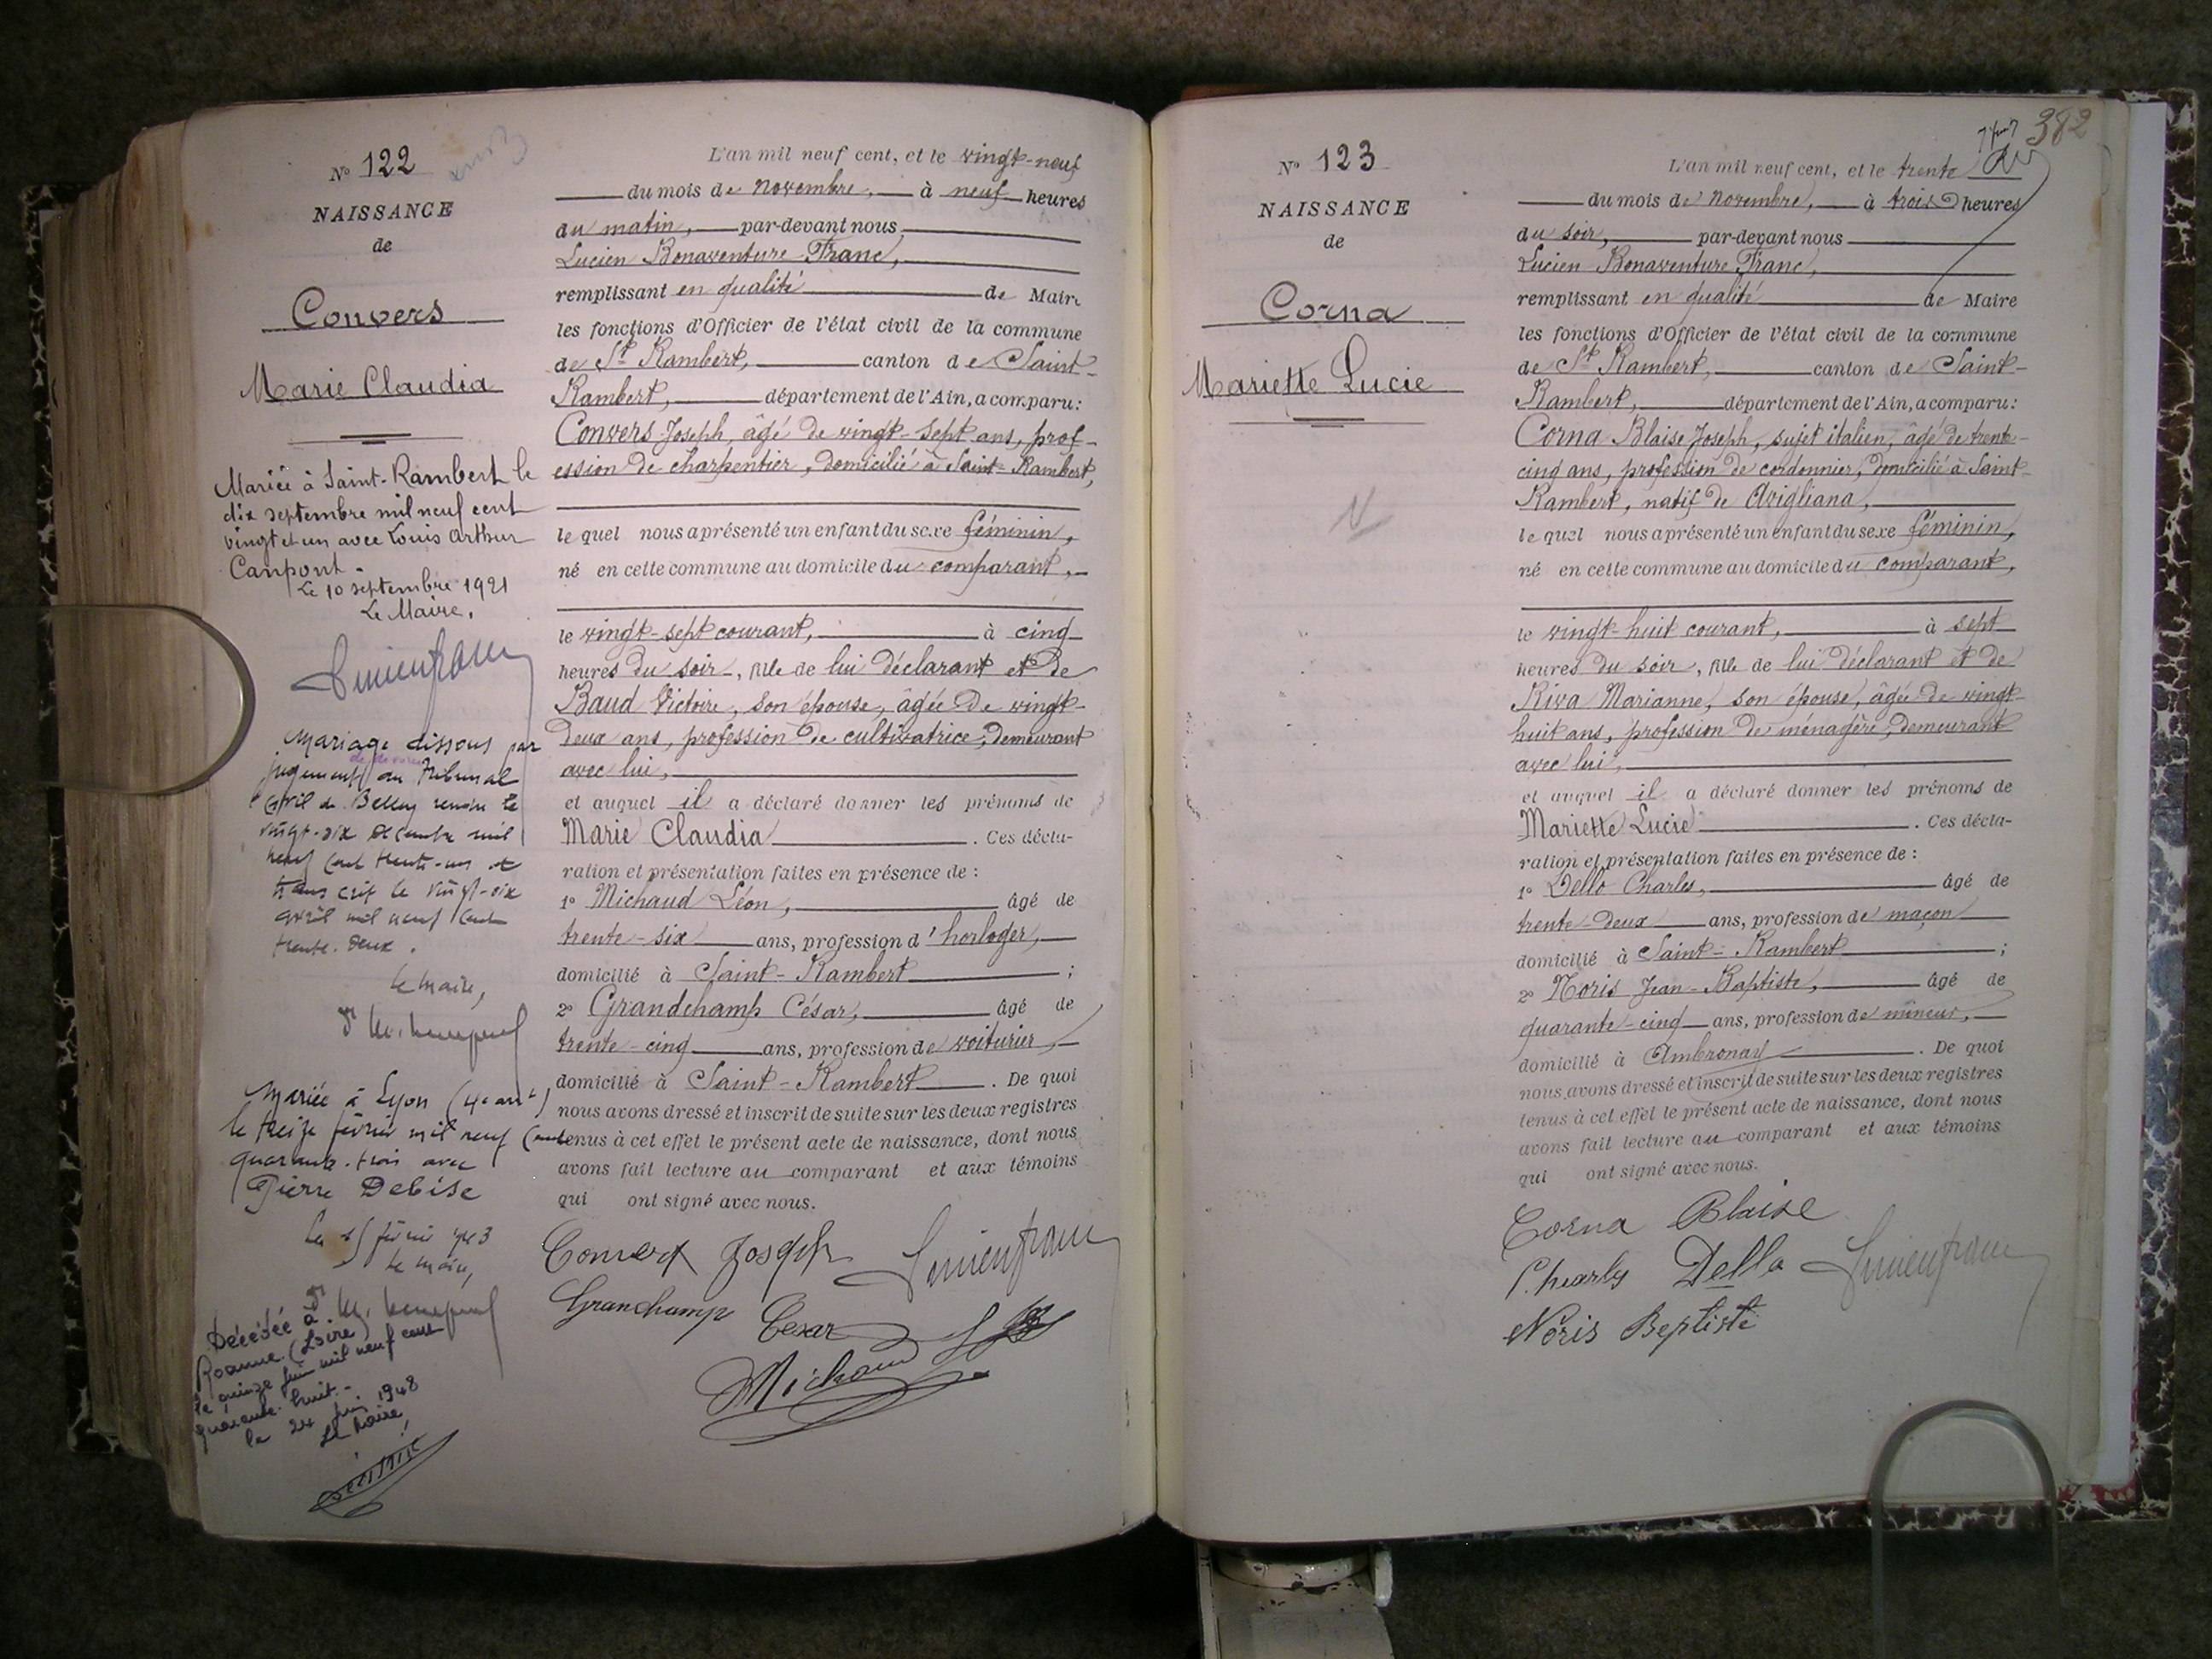 N° 122
NAISSANCE
de
Convers
Marie Claudia
Mariée à Saint-Rambert le
dix septembre mil neuf cent
vingt et un avec Louis Arthur
Canpont.
Le 10 septembre 1921
Le Maire,
Mariage dissous par
de divorce
jugement du Tribunal
civil de Belley rendu le
vingt-six décembre mil
neuf cent trente-un et
transcrit le vingt-six
avril mil neuf cent
trente-deux.
Le Maire,
Mariée à Lyon (4e arrt)
le treize février mil neuf cent
quarante-trois avec
Pierre Debise
le 15 février 1943
Le Maire,
Décédée à
Roanne (Loire)
le quinze juin mil neuf cent
quarante-huit.-
le 24 juin 1948
Le Maire,
L'an mil neuf cent, et le vingt-neuf
du mois de novembre, à neuf heures
du matin, par-devant nous
Lucien Bonaventure Franc,
remplissant en qualité de Maire
les fonctions d'Officier de l'état civil de la commune
de St Rambert, canton de Saint-
Rambert, département de l'Ain, a comparu:
Convers Joseph, âgé de vingt-sept ans, prof-
ession de charpentier, domicilié à Saint-Rambert,
le quel nous a présenté un enfant du sexe féminin,
né en cette commune au domicile du comparant,
le vingt-sept courant, à cinq
heures du soir, fille de lui déclarant et de
Baud Victoire, son épouse, âgée de vingt-
deux ans, profession de cultivatrice, demeurant
avec lui,
et auquel il a déclaré donner les prénoms de
Marie Claudia. Ces décla-
ration et présentation faites en présence de :
1° Michaud Léon, âgé de
trente-six ans, profession d'horloger,
domicilié à Saint-Rambert ;
2° Grandchamp César, âgé de
trente-cinq ans, profession de voiturier,
domicilié à Saint-Rambert. De quoi
nous avons dressé et inscrit de suite sur les deux registres
tenus à cet effet le présent acte de naissance, dont nous
avons fait lecture au comparant et aux témoins
qui ont signé avec nous.
Convers Joseph Lucien Franc
Granchamp César
Michaud
382
N° 123
NAISSANCE
de
Corna
Mariette Lucie
N
L'an mil neuf cent, et le trente
du mois de novembre, à trois heures
du soir, par-devant nous
Lucien Bonaventure Franc,
remplissant en qualité de Maire
les fonctions d'Officier de l'état civil de la commune
de St Rambert, canton de Saint-
Rambert, département de l'Ain, a comparu:
Corna Blaise Joseph, sujet italien, âgé de trente-
cinq ans, profession de cordonnier, domicilié à Saint-
Rambert, natif de Avigliana,
le quel nous a présenté un enfant du sexe féminin,
né en cette commune au domicile du comparant,
le vingt-huit courant, à sept
heures du soir, fille de lui déclarant et de
Riva Marianne, son épouse, âgée de vingt-
huit ans, profession de ménagère, demeurant
avec lui,
et auquel il a déclaré donner les prénoms de
Mariette Lucie. Ces décla-
ration et présentation faites en présence de :
1° Dello Charles, âgé de
trente-deux ans, profession de maçon
domicilié à Saint-Rambert ;
2° Noris Jean-Baptiste, âgé de
quarante-cinq ans, profession de mineur,
domicilié à Ambronay. De quoi
nous avons dressé et inscrit de suite sur les deux registres
tenus à cet effet le présent acte de naissance, dont nous
avons fait lecture au comparant et aux témoins
qui ont signé avec nous.
Corna Blaise
Charly Della Lucien Franc
Noris Beptiste